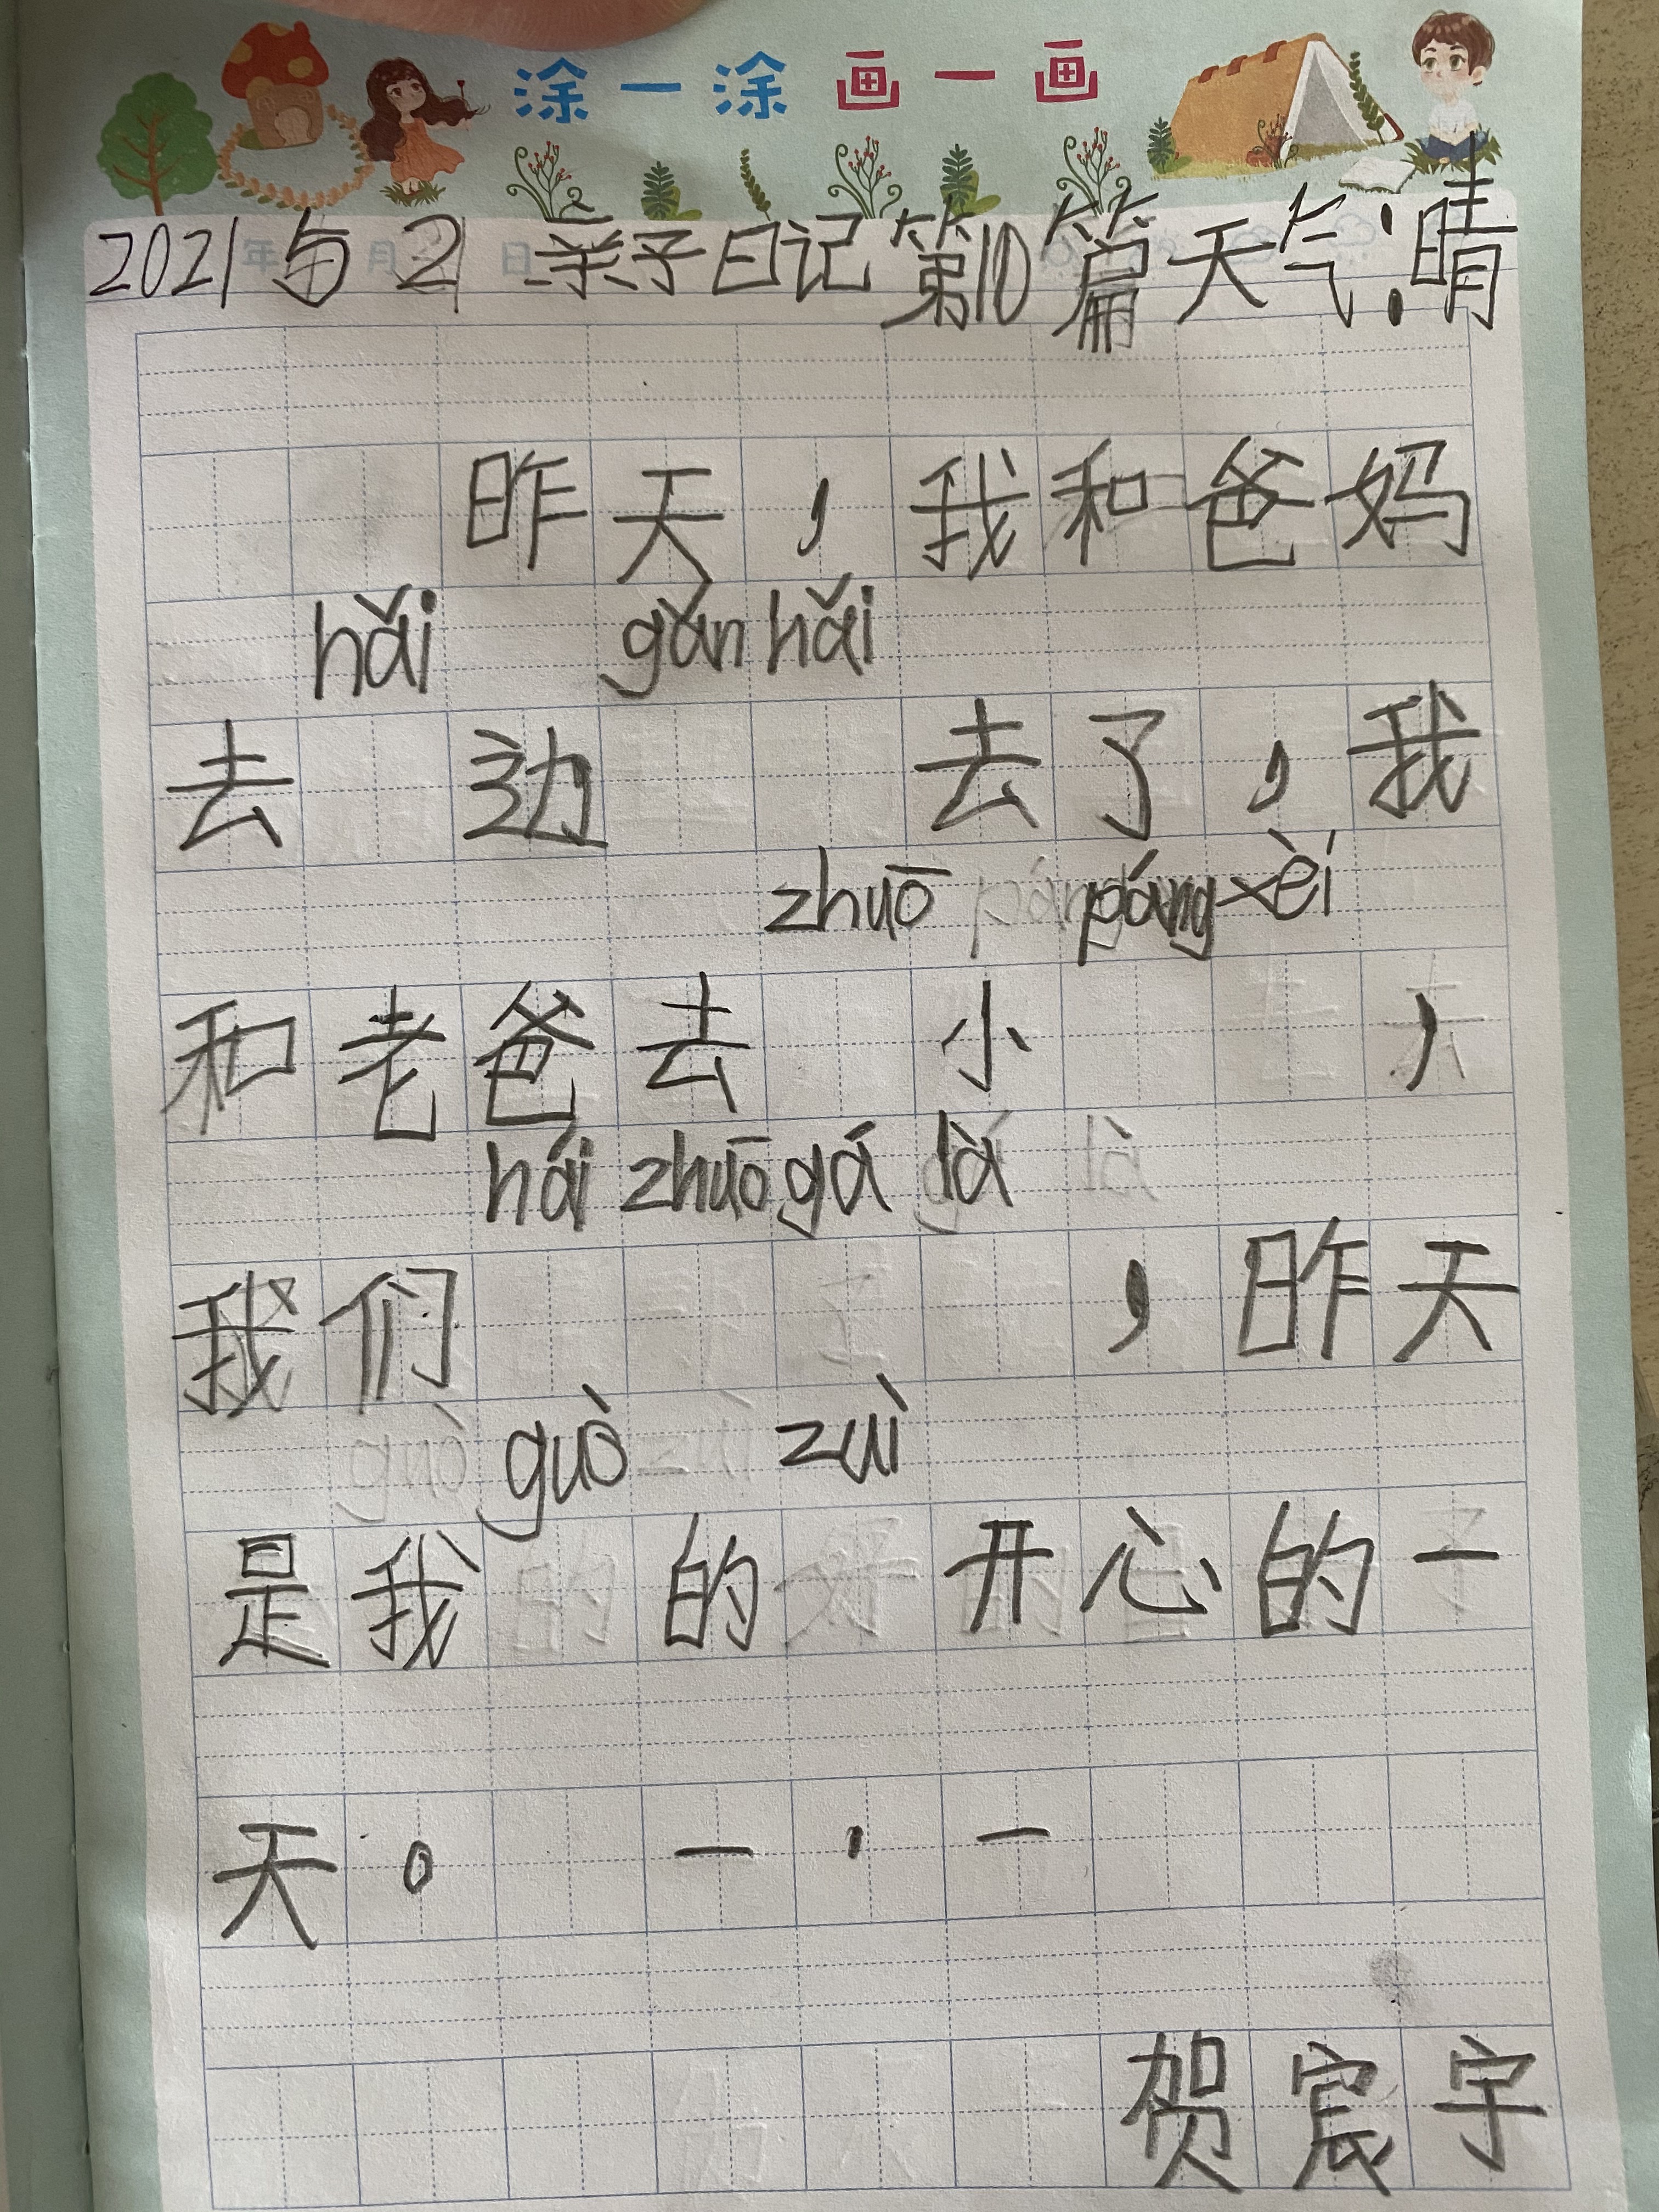 涂一涂 画一画
2021 5 21 亲子日记第10篇天气:晴
昨天，我和爸妈
hǎi gǎn hǎi
去 边 去了，我
zhuō páng xèi
和老爸去 小 ，
hái zhuō gá là
我们 ，昨天
guò zuì
是我 的 开心的一
天。 一·一
贺宸宇